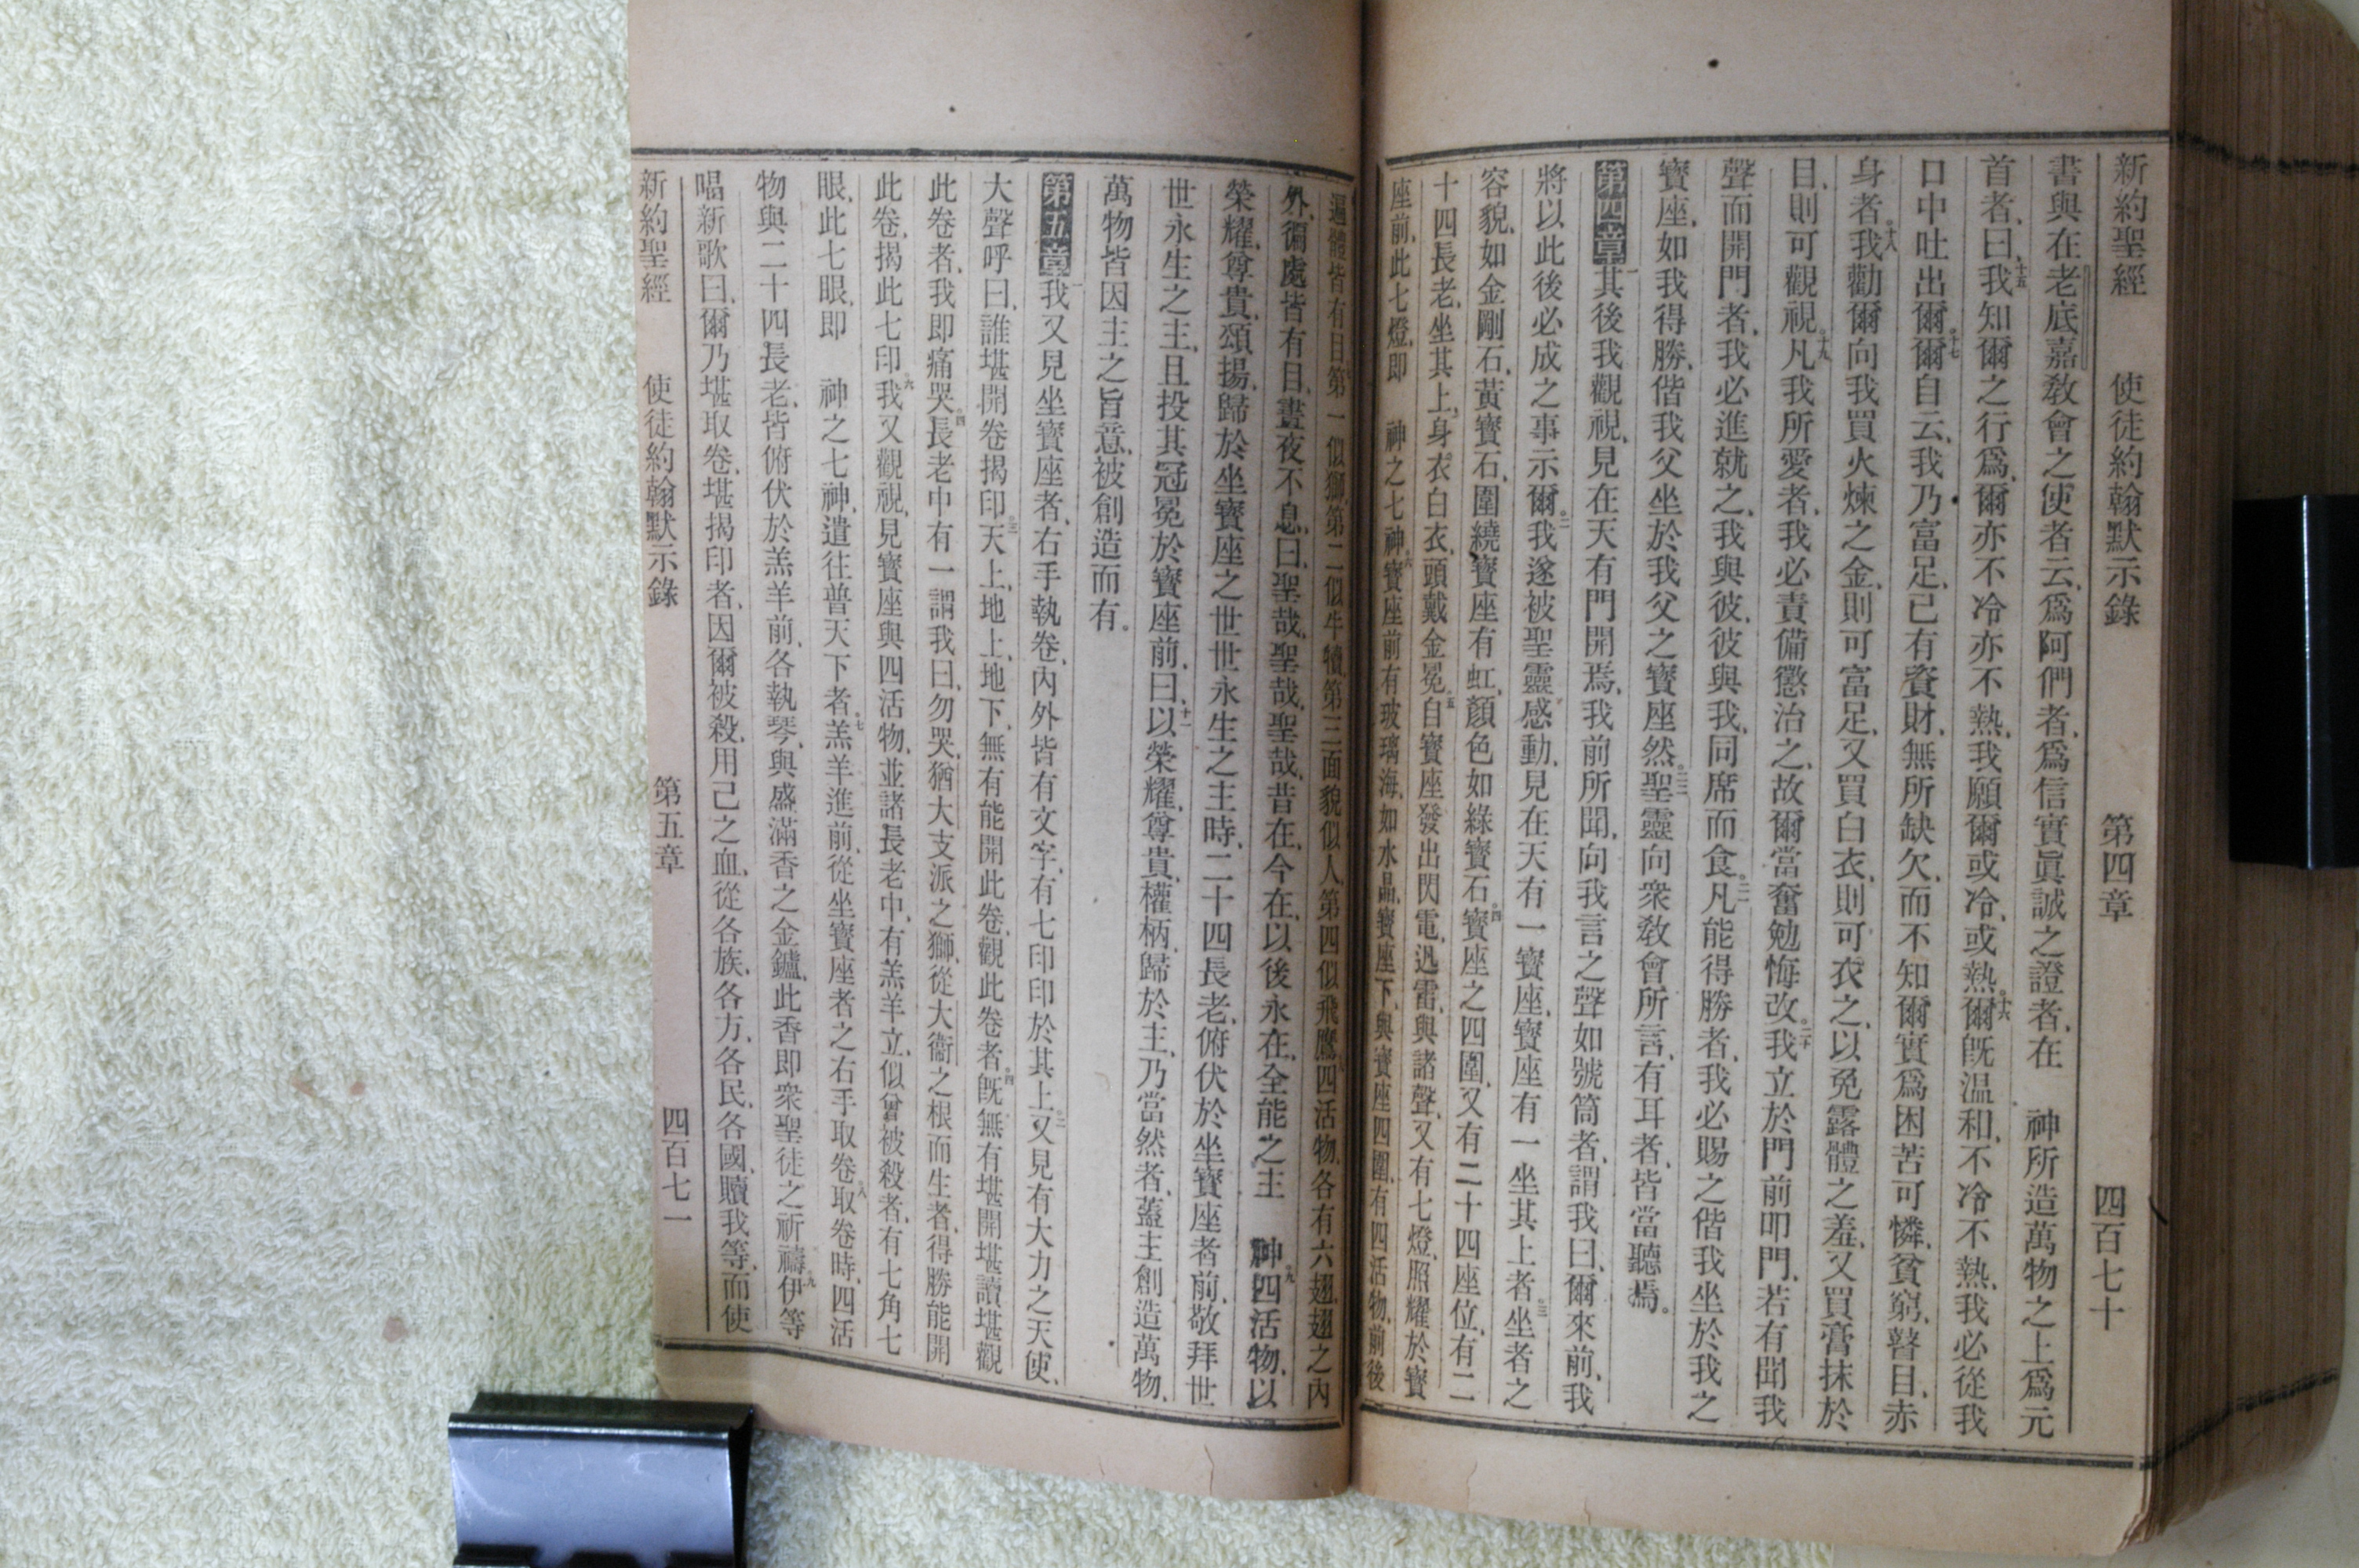 新約聖經 使徒約翰默示錄 第四章 四百七十
書與在老底嘉敎會之使者云、爲阿們者、爲信實眞誠之證者、在 神所造萬物之上爲元
首者、曰、十五我知爾之行爲、爾亦不冷亦不熱、我願爾或冷、或熱。十六爾旣温和、不冷不熱、我必從我
口中吐出爾。十七爾自云、我乃富足、已有資財、無所缺欠、而不知爾實爲困苦可憐、貧窮、瞽目、赤
身者。十八我勸爾向我買火煉之金、則可富足、又買白衣、則可衣之、以免露體之羞、又買膏抹於
目、則可觀視。十九凡我所愛者、我必責備懲治之、故爾當奮勉悔改。二十我立於門前叩門、若有聞我
聲而開門者、我必進就之、我與彼、彼與我、同席而食。二一凡能得勝者、我必賜之偕我坐於我之
寶座、如我得勝、偕我父坐於我父之寶座然。二二聖靈向衆敎會所言、有耳者、皆當聽焉。
第四章 一其後我觀視、見在天有門開焉、我前所聞、向我言之聲如號筒者、謂我曰、爾來前、我
將以此後必成之事示爾。二我遂被聖靈感動、見在天有一寶座、寶座有一坐其上者。三坐者之
容貌、如金剛石、黃寶石、圍繞寶座有虹、顏色如綠寶石。四寶座之四圍、又有二十四座位、有二
十四長老、坐其上、身衣白衣、頭戴金冕。五自寶座發出閃電、迅雷、與諸聲、又有七燈、照耀於寶
座前、此七燈、即 神之七神。六寶座前有玻璃海、如水晶、寶座下、與寶座四圍、有四活物、前後
遍體皆有目。第一似獅、第二似牛犢、第三面貌似人、第四似飛鷹。八四活物、各有六翅、翅之內
外、徧處皆有目、晝夜不息、曰、聖哉、聖哉、聖哉、昔在、今在、以後永在、全能之主 神。九四活物、以
榮耀、尊貴、頌揚、歸於坐寶座之世世永生之主時、二十四長老、俯伏於坐寶座者前、敬拜世
世永生之主、且投其冠冕於寶座前、曰、十一以榮耀、尊貴、權柄、歸於主、乃當然者、蓋主創造萬物、
萬物皆因主之旨意、被創造而有。
第五章 一我又見坐寶座者、右手執卷、內外皆有文字、有七印印於其上。二又見有大力之天使、
大聲呼曰、誰堪開卷揭印。三天上、地上、地下、無有能開此卷、觀此卷者。四旣無有堪開堪讀堪觀
此卷者、我即痛哭。四長老中有一謂我曰、勿哭、猶大支派之獅、從大衞之根而生者、得勝能開
此卷、揭此七印。六我又觀視、見寶座與四活物、並諸長老中、有羔羊立、似曾被殺者、有七角七
眼、此七眼、即 神之七神、遣往普天下者。七羔羊進前、從坐寶座者之右手取卷。八取卷時、四活
物與二十四長老、皆俯伏於羔羊前、各執琴、與盛滿香之金鑪、此香即衆聖徒之祈禱。九伊等
唱新歌曰、爾乃堪取卷、堪揭印者、因爾被殺、用己之血、從各族、各方、各民、各國、贖我等、而使
新約聖經 使徒約翰默示錄 第五章 四百七一